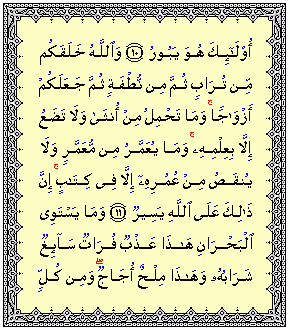 أُوْلَٰٓئِكَ هُوَ يَبُورُ ۝١٠ وَٱللَّهُ خَلَقَكُم
مِّن تُرَابٍ ثُمَّ مِن نُّطْفَةٍ ثُمَّ جَعَلَكُمْ
أَزْوَٰجًا ۚ وَمَا تَحْمِلُ مِنْ أُنثَىٰ وَلَا تَضَعُ
إِلَّا بِعِلْمِهِۦ ۚ وَمَا يُعَمَّرُ مِن مُّعَمَّرٍ وَلَا
يُنقَصُ مِنْ عُمُرِهِۦٓ إِلَّا فِى كِتَٰبٍ ۚ إِنَّ
ذَٰلِكَ عَلَى ٱللَّهِ يَسِيرٌ ۝١١ وَمَا يَسْتَوِى
ٱلْبَحْرَانِ هَٰذَا عَذْبٌ فُرَاتٌ سَآئِغٌ
شَرَابُهُۥ وَهَٰذَا مِلْحٌ أُجَاجٌ ۖ وَمِن كُلٍّ